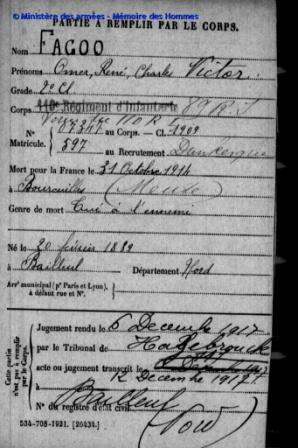 © Ministère des armées - Mémoire des Hommes
PARTIE À REMPLIR PAR LE CORPS.
Nom FAGOO
Prénoms Omer, René, Charles Victor
Grade 2e Cl
Corps 110e Régiment d'Infanterie 89 R I
110 R I
N° au Corps. - Cl. 1909
Matricule. 597 au Recrutement Dunkerque
Mort pour la France le 31 Octobre 1914
à Boureuilles (Meuse)
Genre de mort Tué à l'ennemi
Né le 20 février 1889
à Bailleul Département Nord
Arrt municipal (pr Paris et Lyon),
à défaut rue et N°.
Cette partie
n'est pas à remplir
par le Corps.
Jugement rendu le 6 Decembre 1917
par le Tribunal de Hazebrouck
acte ou jugement transcrit le
12 Decembre 1917
à Bailleul
N° du registre d'état civil
Nord
534-708-1921. [26434.]